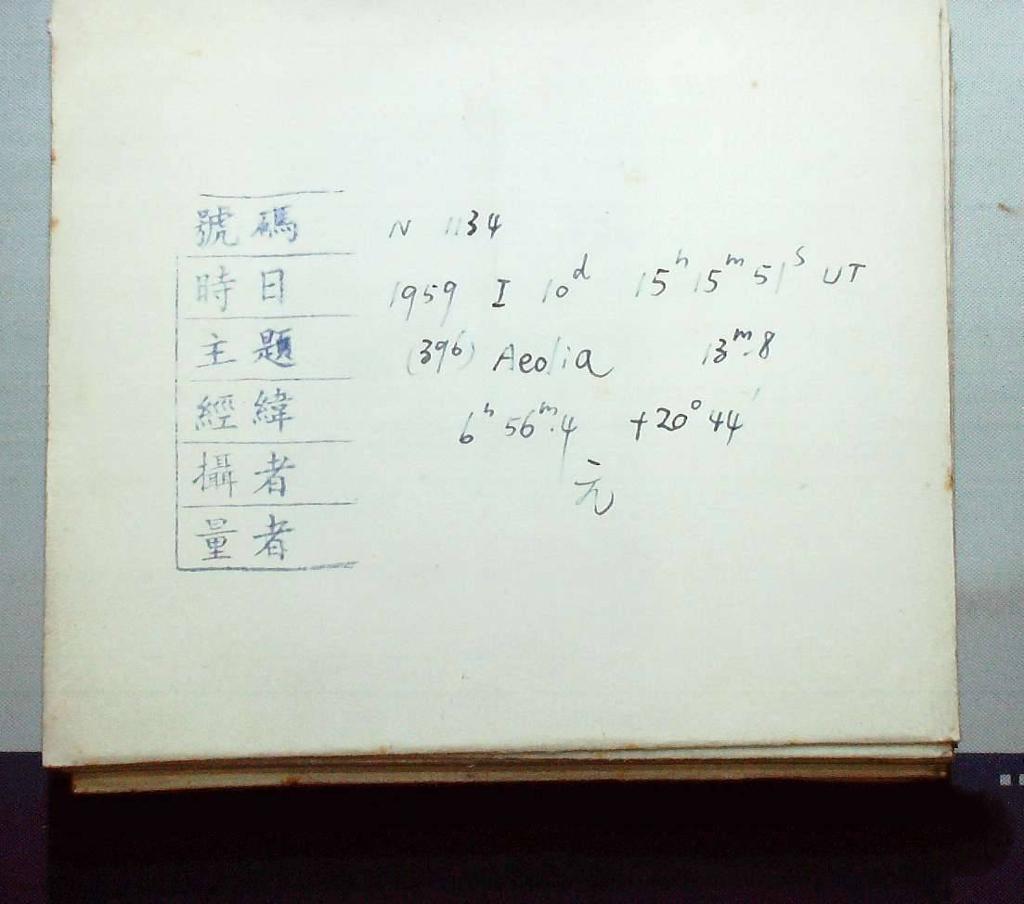 號碼 N 1134
時日 1959 I 10ᵈ 15ʰ 15ᵐ 51ˢ UT
主題 (396) Aeolia 13ᵐ.8
經緯 6ʰ 56ᵐ.4 +20° 44′
攝者 元
量者